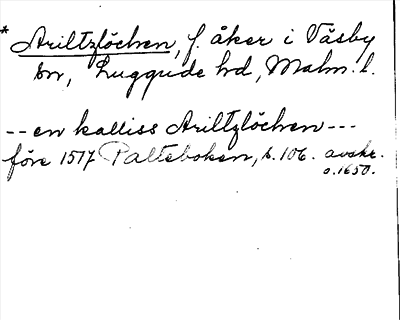 * Ariltzlöchen, f. åker i Väsby
sn, Luggude hd, Malm. l.
-- en kalliss Ariltzlöchen ---
före 1517 Palteboken, s. 106. avskr.
o. 1650.